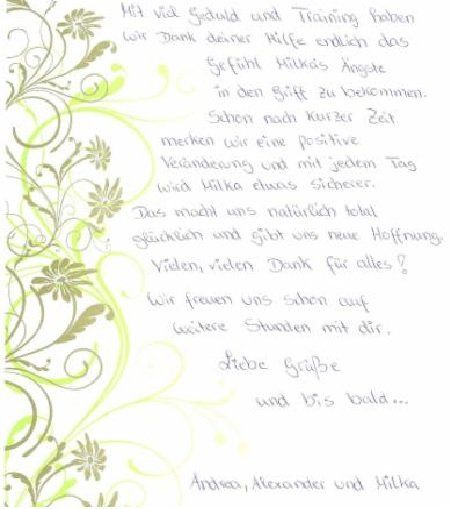 Mit viel Geduld und Training haben
wir Dank deiner Hilfe endlich das
Gefühl Milka's Ängste
in den Griff zu bekommen.
Schon nach kurzer Zeit
merken wir eine positive
Veränderung und mit jedem Tag
wird Milka etwas sicherer.
Das macht uns natürlich total
glücklich und gibt uns neue Hoffnung.
Vielen, vielen Dank für alles!
Wir freuen uns schon auf
weitere Stunden mit dir.
Liebe Grüße
und bis bald...
Andrea, Alexander und Milka